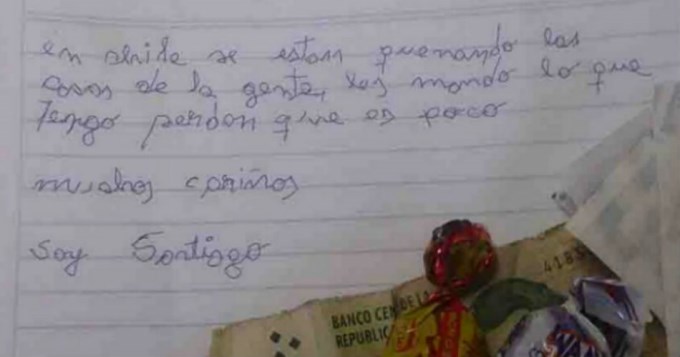 en chile se estan quemando las
casas de la gente, les mando lo que
Tengo perdon que es poco
muchos cariños
soy Santiago
BANCO CEN DE LA
REPUBLIC